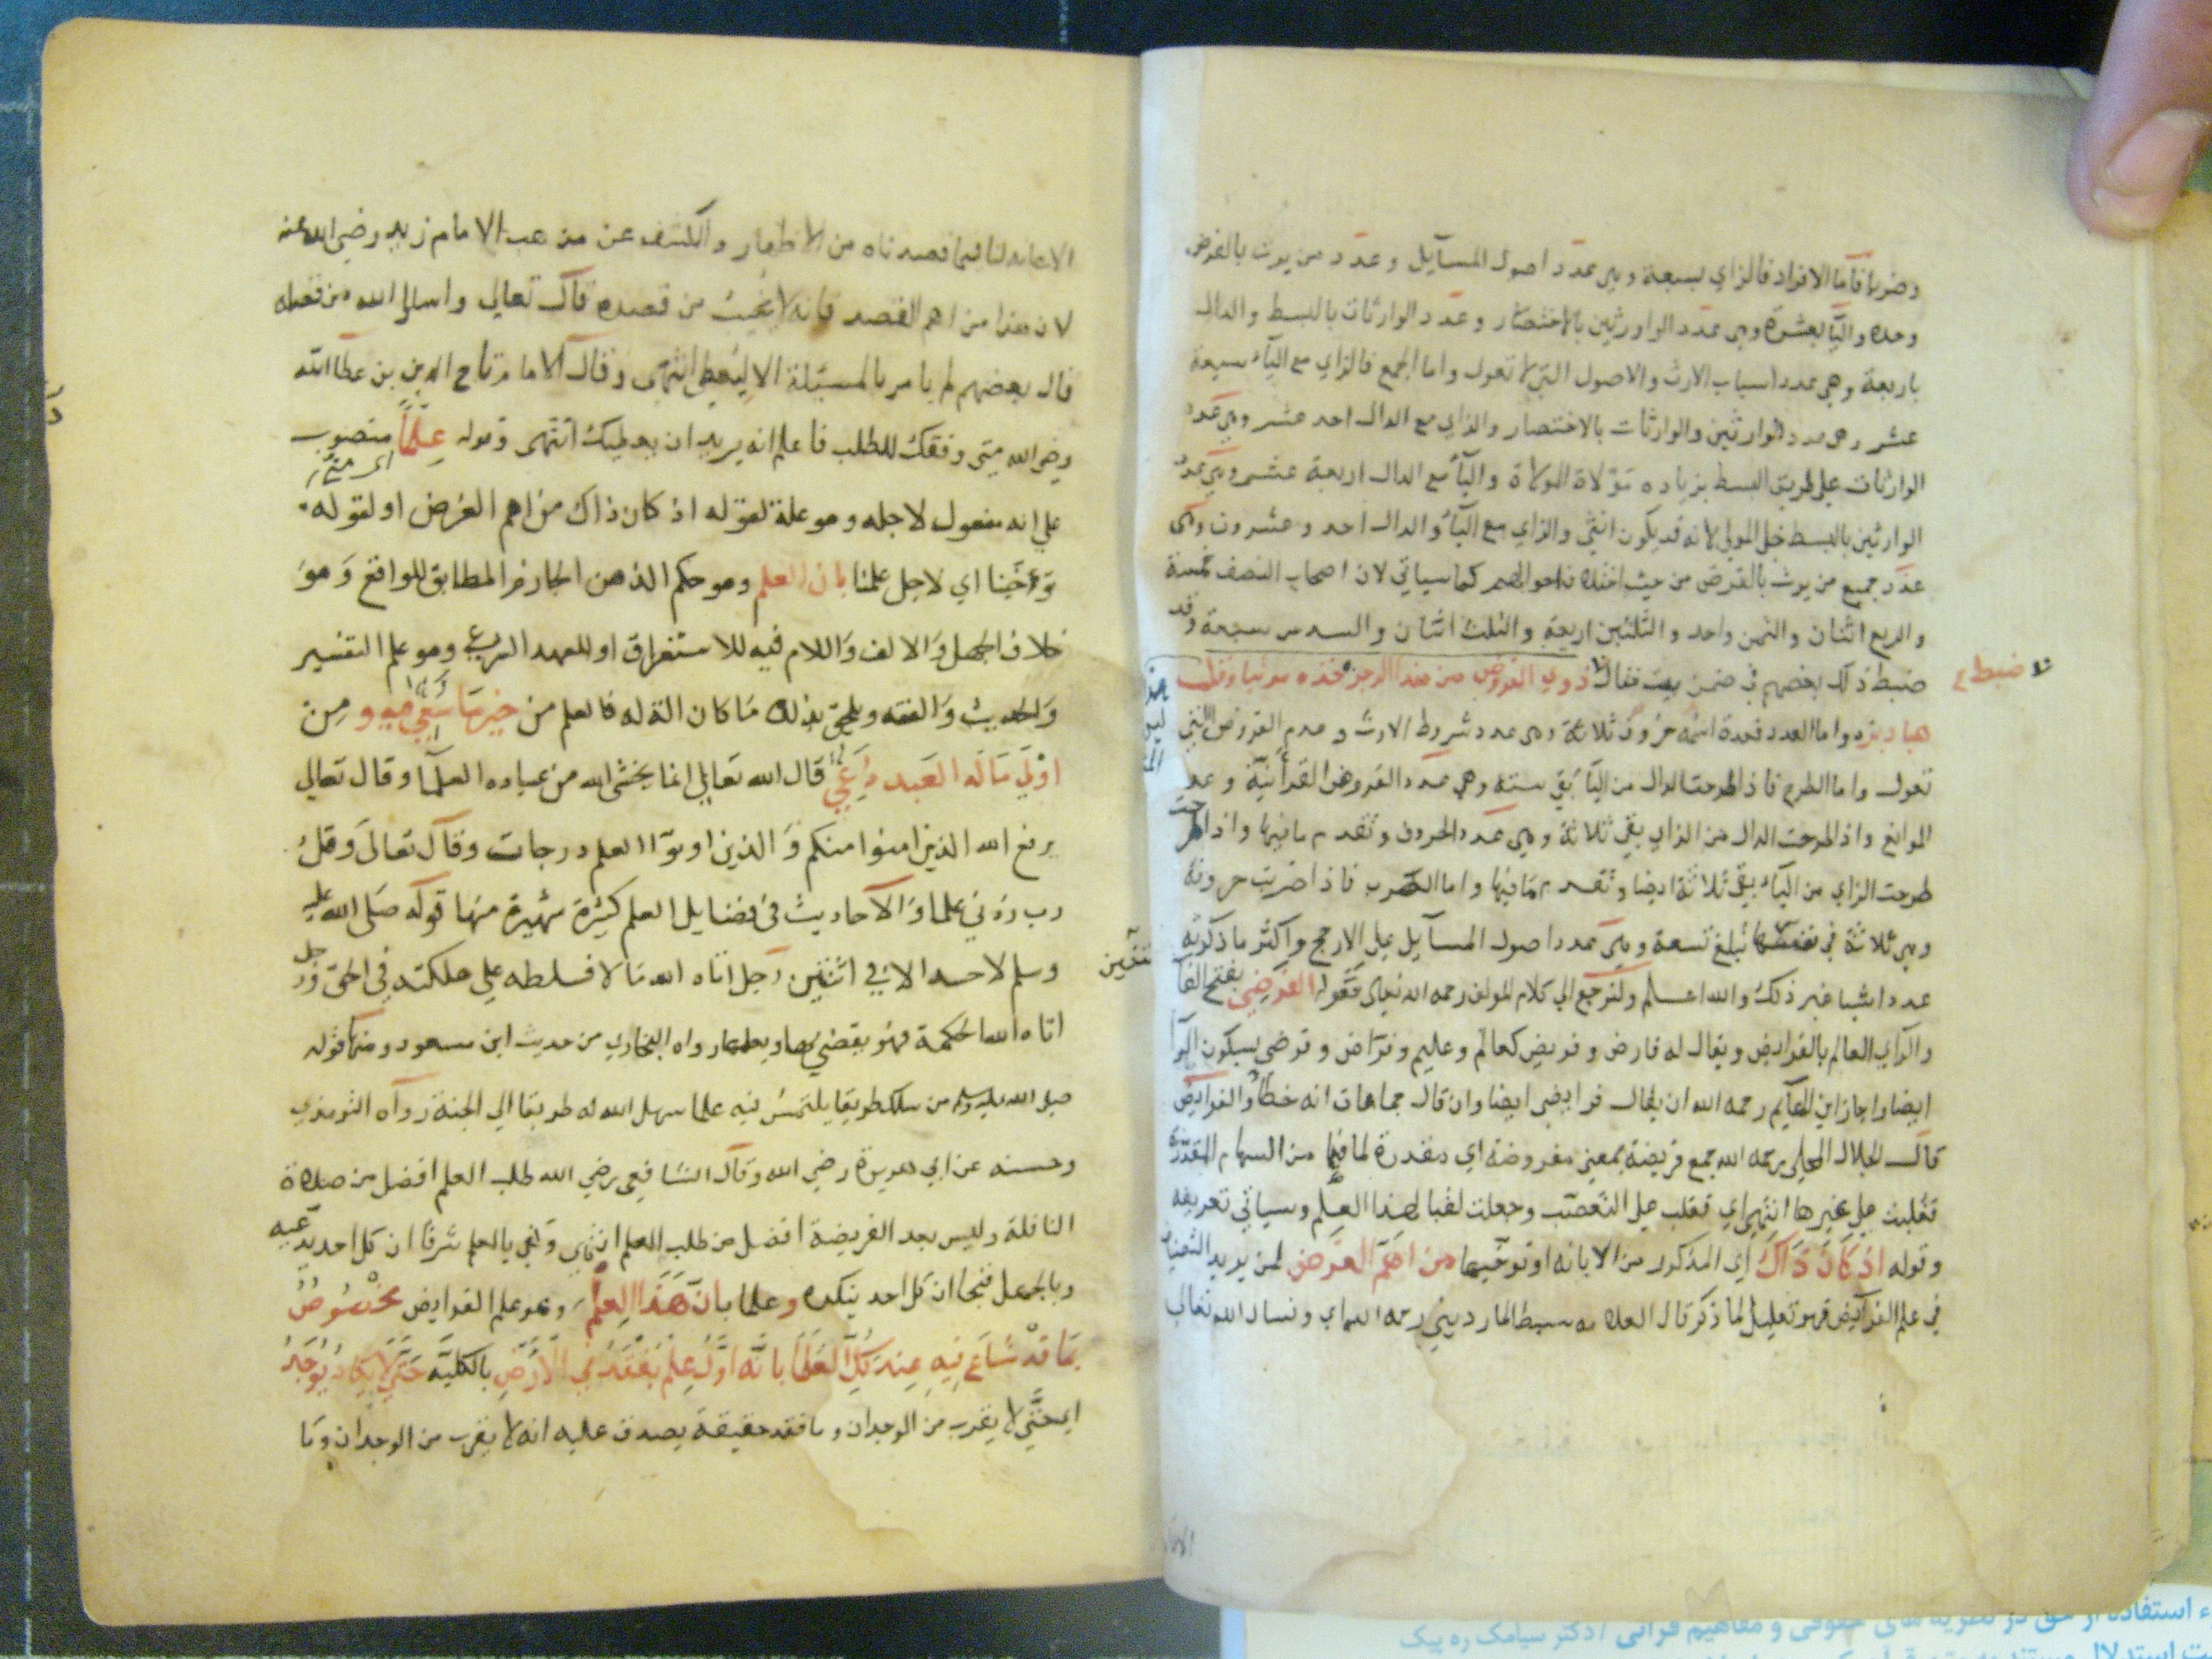 وضربا فاما الافراد فالزاي بسبعة وهي عدد اصول المسآيل وعدد من يرث بالفرض
وحده واليآ بعشرة وهي عدد الوارثين بالاختصار وعدد الوارثات بالبسط والدال
باربعة وهي عدد اسباب الارث والاصول التي لا تعول واما الجمع فالزاي مع اليآء سبعة
عشر وهي عدد الوارثين والوارثات بالاختصار والزاي مع الدال احد عشر وهي عدد
الوارثات على طريق البسط بزيادة مولاة المولاة واليآ مع الدال اربعة عشر وهي عدد
الوارثين بالبسط خلى المولى لانه قد يكون انثى والزاي مع اليآء والدال احد وعشرون وهي
عدد جميع من يرث بالفرض من حيث اختلاف احوالهم كما سياتي لان اصحاب النصف خمسة
والربع اثنان والثمن واحد والثلثين اربعة والثلث اثنان والسدس سبعة وقد
ضبط ذلك بعضهم في ضمن بيت فقال ذوي الفروض من هذا الرجز خذه مرتبا وقل
هبادبز واما العدد فعدة اسمه حروف ثلاثة وهي عدد شروط الارث وعدم الفروض التي
تعول واما الطرح فاذا طرحت الدال من اليآ بقي ستة وهي عدد الفروض القرأنية وعدد
الموانع واذا طرحت الدال من الزاي بقي ثلاثة وهي عدد الحروف وتقدم ما فيها واذا
طرحت الزاي من اليآء بقي ثلاثة ايضا وتقدم ما فيها واما الضرب فاذا ضربت حروفه
وهي ثلاثة في نفسها تبلغ تسعة وهي عدد اصول المسآيل على الارجح واكثر ما ذكرته
عدد اشيا غير ذلك والله اعلم ولنرجع الى كلام المولف رحمه الله تعالى فقوله الفرضي بفتح الفآ
والرآي العالم بالفرايض ويقال له فارض وفريض كعالم وعليم وفراض وفرضي بسكون الرآ
ايضا واجاز ابن الهآيم رحمه الله ان يقال فرايضي ايضا وان قال جماعات انه خطأ والفرايض
قال الجلال المحلي رحمه الله جمع فريضة بمعنى مفروضة اي مقدرة لما فيها من السهام المقدرة
فغلبت على غيرها انتهى اي فغلب على التعصيب وجعلت لقبا لهذا العلم وسياتي تعريفه
وقوله اذ كان ذاك اي المذكور من الابانه او توخيها من اهم الغرض لمن يريد التصنيف
في علم الفرآيض فهو تعليل لما ذكر قال العلامه سبط المارديني رحمه الله اي ونسال الله تعالى
ضبط
الاعانه لنا فيما قصدناه من الاظهار والكشف عن مذهب الامام زيد رضي الله عنه
لان هذا من اهم القصد فانه لا يخيب من قصده قال تعالى واسالوا الله من فضله
قال بعضهم لم يامر بالمسئلة الا ليعطي انتهى وقال الامام تاج الدين بن عطا الله
رضي الله متى وفقك للطلب فاعلم انه يريد ان يعطيك انتهى وقوله علما منصوب
على انه مفعول لاجله وهو علة لقوله اذ كان ذاك من اهم الغرض او لقوله
توخينا اي لاجل علمنا بان العلم وهو حكم الذهن الجازم المطابق للواقع وهو
خلاف الجهل والالف واللام فيه للاستغراق او للعهد الشرعي وهو علم التفسير
والحديث والفقه ويلحق بذلك ما كان الة له فالعلم من خير ما سعي فيه ومن
اولى ما له العبد دعي قال الله تعالى انما يخشى الله من عباده العلمآ وقال تعالى
يرفع الله الذين امنوا منكم والذين اوتوا العلم درجات وقال تعالى وقل
رب زدني علما والاحاديث في فضايل العلم كثيرة شهيرة منها قوله صلى الله عليه
وسلم لا حسد الا في اثنتين رجل اتاه الله مالا فسلطه على هلكته في الحق ورجل
اتاه الله الحكمة فهو يقضي بها ويعلمها رواه البخاري من حديث ابن مسعود ومنها قوله
صلى الله عليه وسلم من سلك طريقا يلتمس فيه علما سهل الله له طريقا الى الجنة رواه الترمذي
وحسنه عن ابي هريرة رضي الله وقال الشافعي رضي الله طلب العلم افضل من صلاة
النافلة وليس بعد الفريضة افضل من طلب العلم انتهى وكفى بالعلم شرفا ان كل احد يدعيه
وبالجهل قبحا ان كل احد ينكره وعلما بان هذا العلم وهو علم الفرايض مخصوص
بما قد شاع فيه عند كل العلما بانه اول علم يفقد في الارض بالكلية حتى لا يكاد يوجد
اي حتى لا يقرب من الوجدان وما فقد حقيقة يصدق عليه انه لا يقرب من الوجدان وما